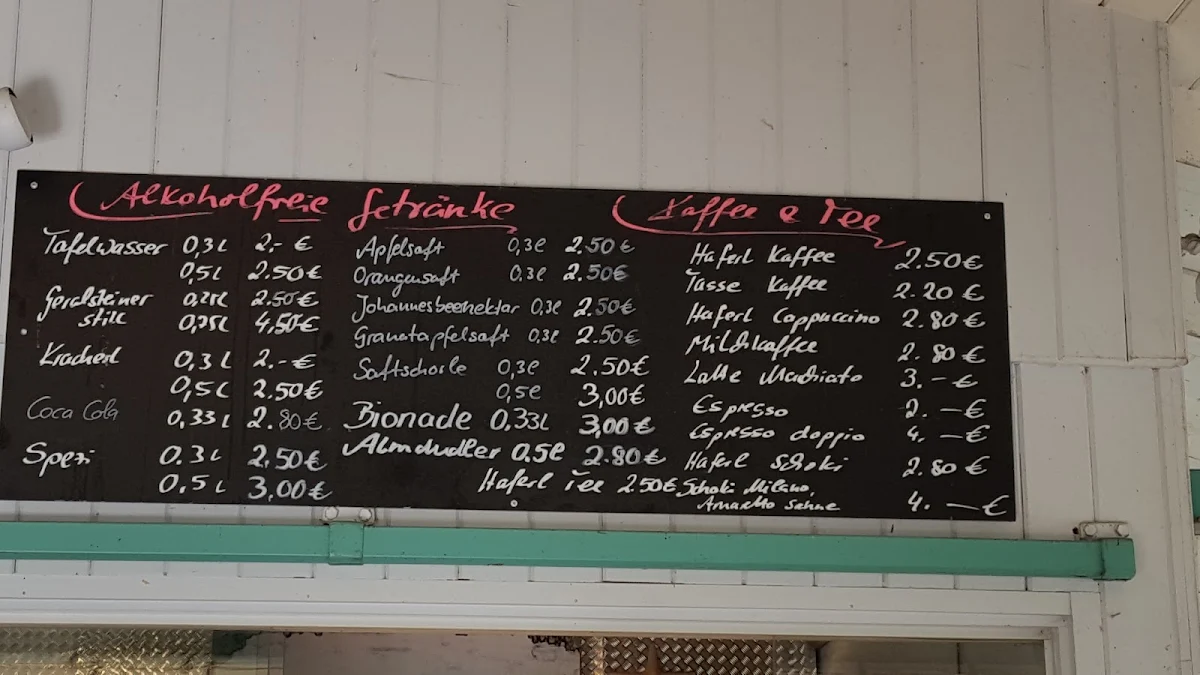 Alkoholfreie Getränke
Tafelwasser 0,3l 2,- €
0,5l 2.50€
Gerolsteiner 0,25l 2.50€
still 0,75l 4,50€
Kracherl 0,3l 2.-€
0,5l 2.50€
Coca Cola 0,33l 2.80€
Spezi 0.3l 2,50€
0,5l 3,00€
Apfelsaft 0,3l 2.50€
Orangensaft 0.3l 2.50€
Johannesbeernektar 0,3l 2,50€
Granatapfelsaft 0,3l 2.50€
Saftschorle 0,3l 2.50€
0,5l 3,00€
Bionade 0,33l 3,00€
Almdudler 0.5l 2.80€
Haferl Tee 2.50€
Kaffee & Tee
Haferl Kaffee 2.50€
Tasse Kaffee 2.20€
Haferl Cappuccino 2.80€
Milchkaffee 2.80€
Latte Machiato 3.-€
Espresso 2.-€
Espresso doppio 4.-€
Haferl Schoki 2.80€
Schoki Milano,
Amaretto Sahne 4.-€